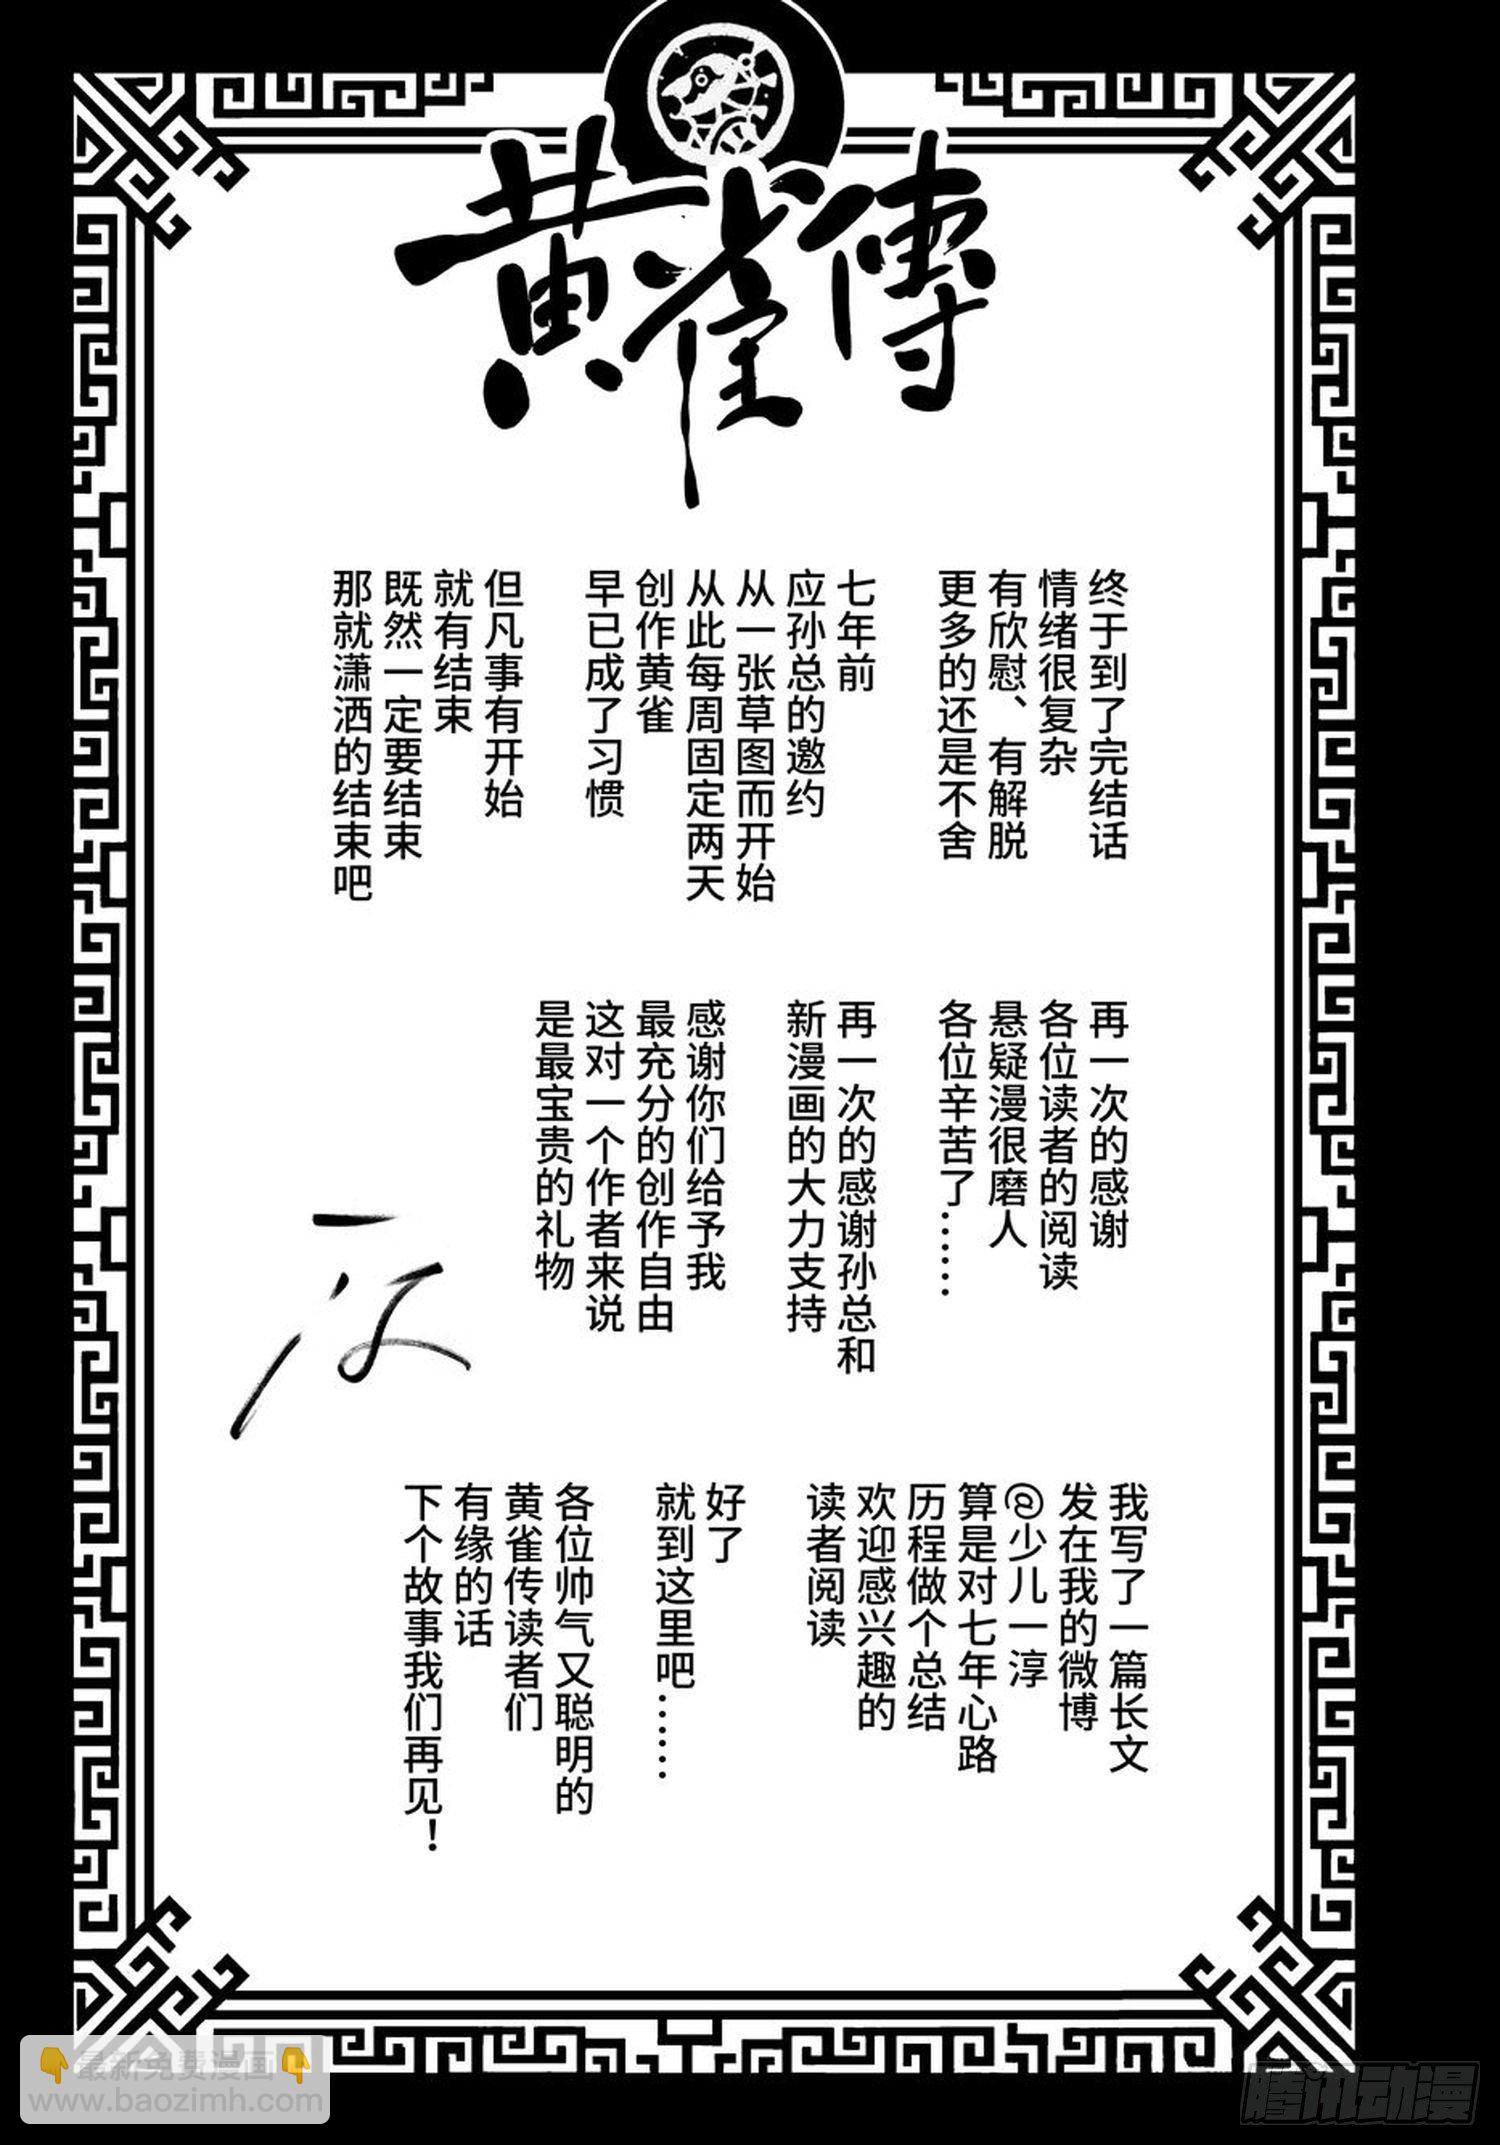 黄雀傳
终于到了完结话
情绪很复杂
有欣慰、有解脱
更多的还是不舍
七年前
应孙总的邀约
从一张草图而开始
从此每周固定两天
创作黄雀
早已成了习惯
但凡事有开始
就有结束
既然一定要结束
那就潇洒的结束吧
再一次的感谢
各位读者的阅读
悬疑漫很磨人
各位辛苦了……
再一次的感谢孙总和
新漫画的大力支持
感谢你们给予我
最充分的创作自由
这对一个作者来说
是最宝贵的礼物
我写了一篇长文
发在我的微博
@少儿一淳
算是对七年心路
历程做个总结
欢迎感兴趣的
读者阅读
好了
就到这里吧……
各位帅气又聪明的
黄雀传读者们
有缘的话
下个故事我们再见！
👇最新免费漫画👇
www.baozimh.com
腾讯动漫